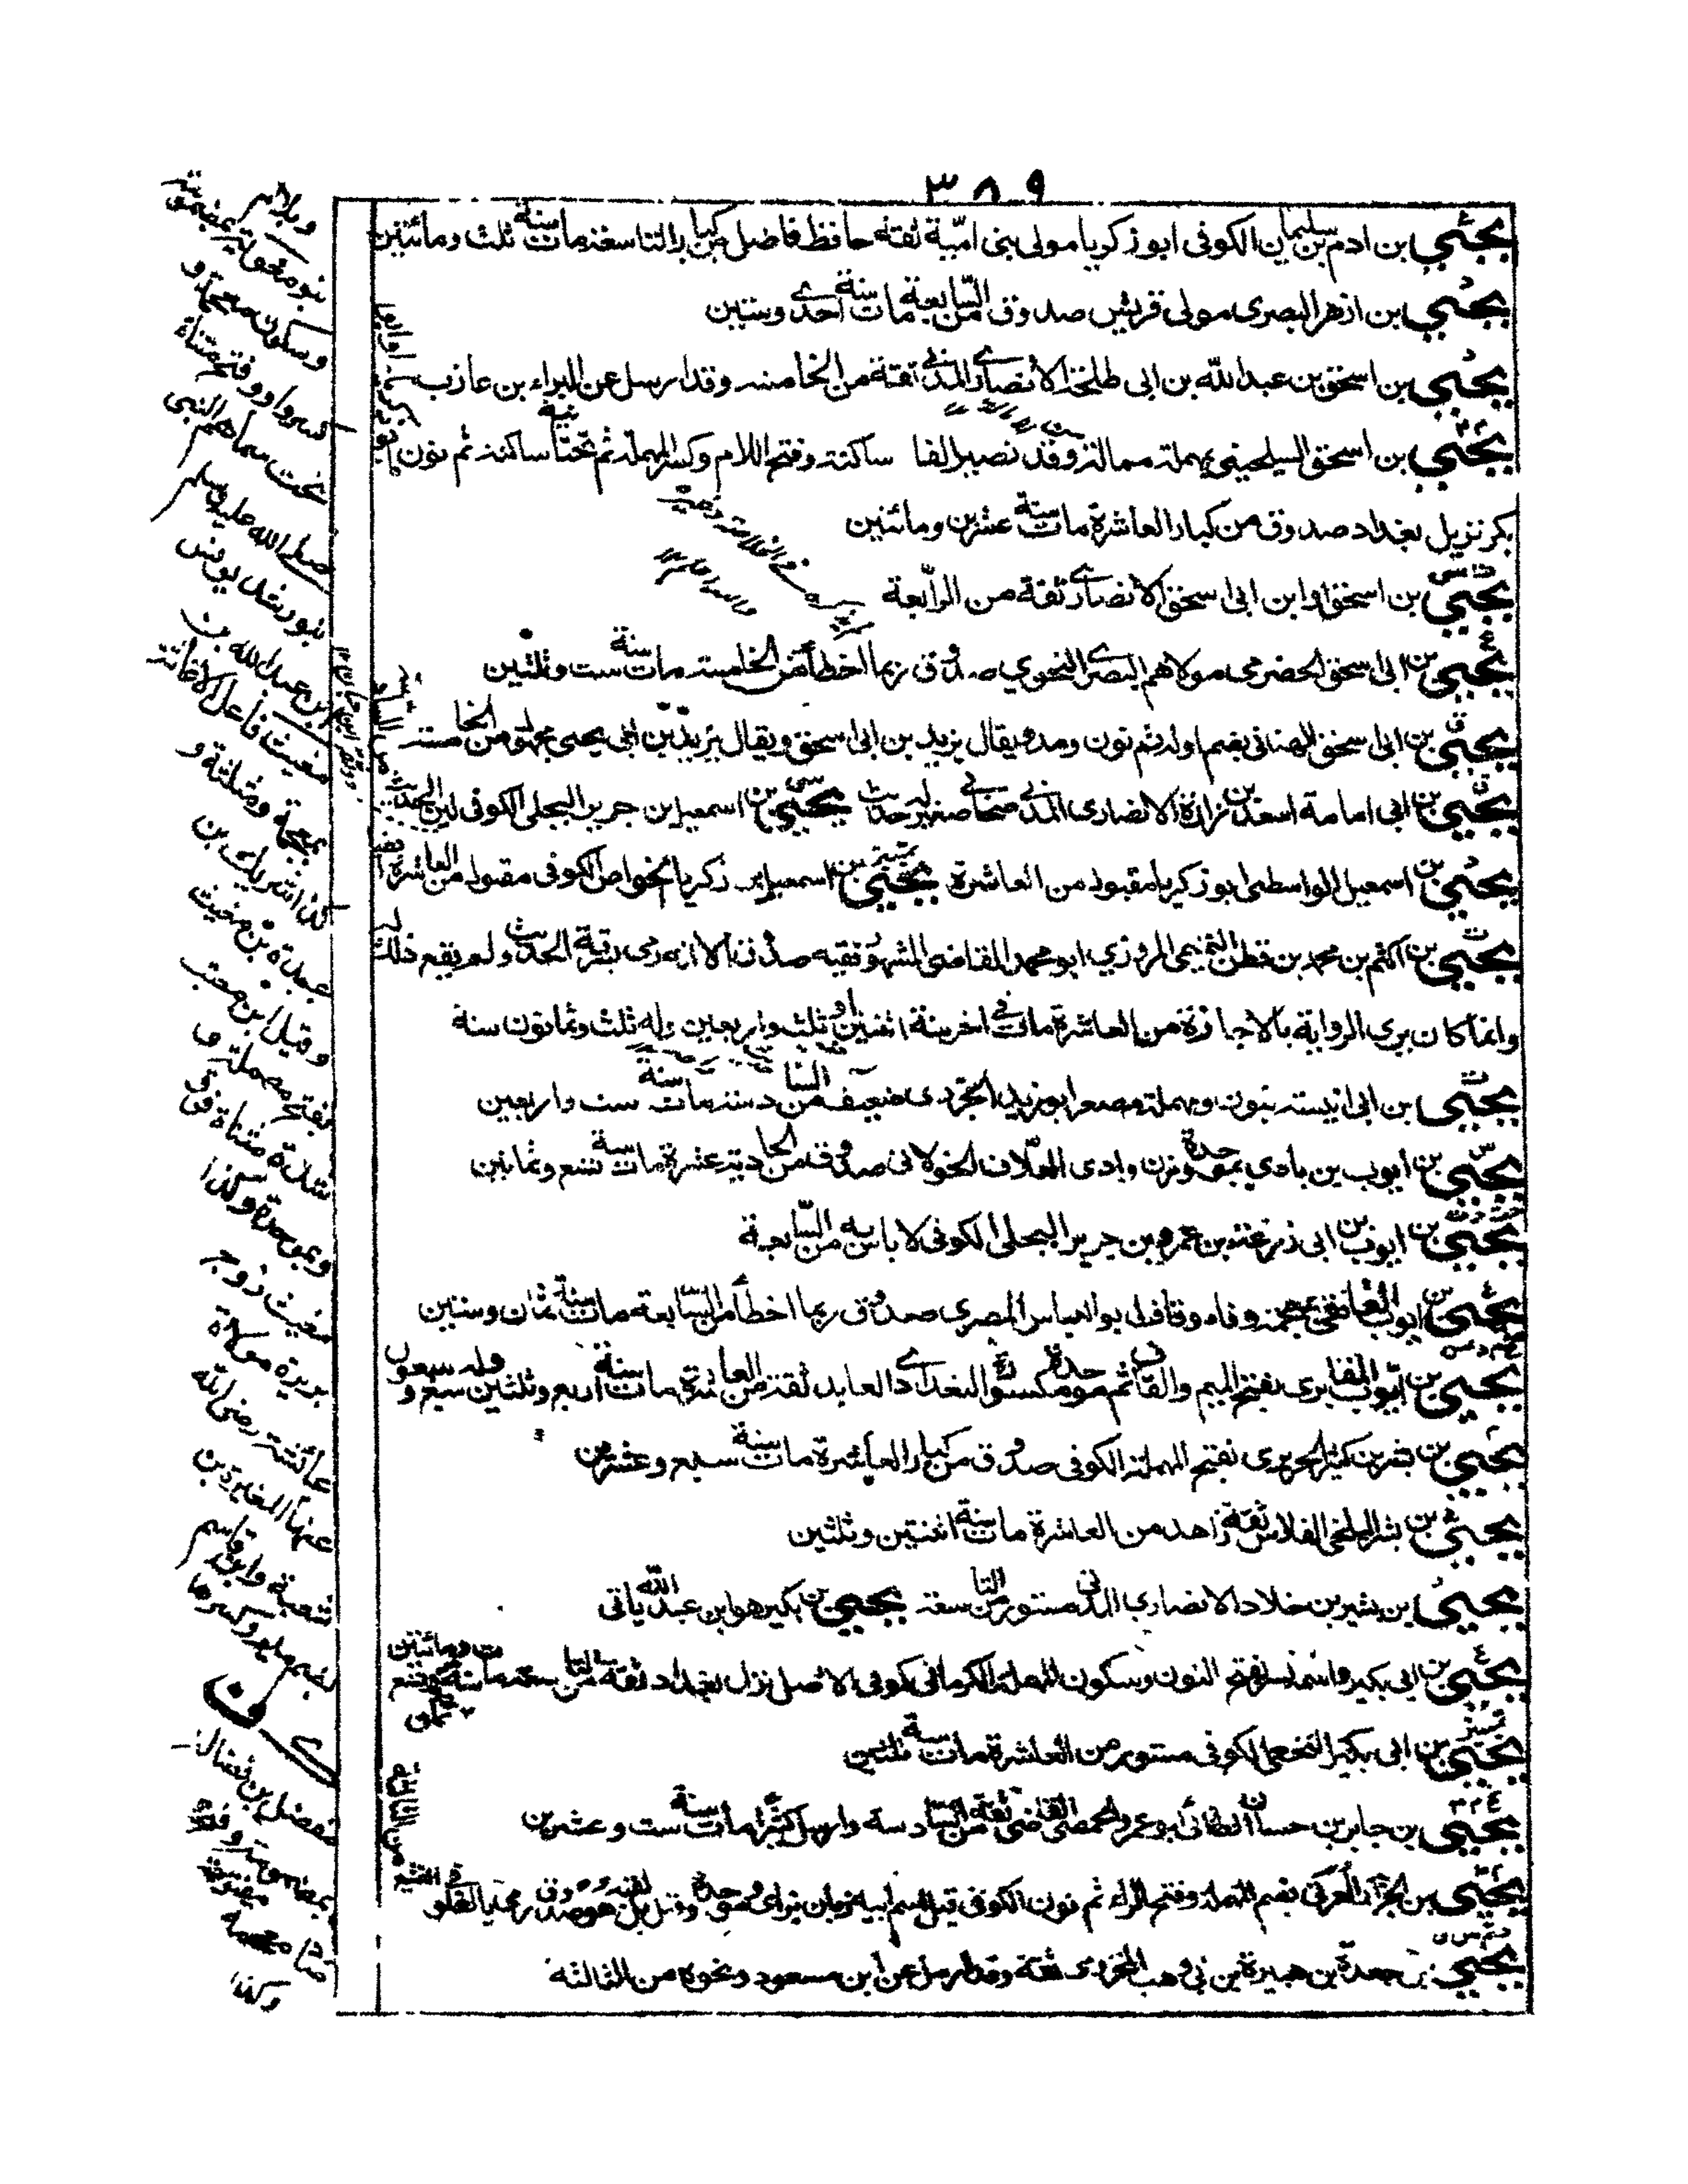 ٣٨٩
يحيى بن ادم بن سليمان الكوفى ابو زكريا مولى بنى امية ثقة حافظ فاضل من كبار التاسعة مات سنة ثلث ومائتين
يحيى بن ازهر البصرى مولى قريش صدوق من السابعة مات سنة احدى وستين
يحيى بن اسحق بن عبدالله بن ابى طلحة الانصارى المدنى ثقة من الخامسة وقد ارسل عن البراء بن عازب
يحيى بن اسحق السيلحينى بمهملة ممالة وقد تصير الفا ساكنة وفتح اللام وكسر المهملة ثم تحتانية ساكنة ثم نون ابو
بكر نزيل بغداد صدوق من كبار العاشرة مات سنة عشرين ومائتين
يحيى بن اسحق او ابن ابى اسحق الانصارى ثقة من الرابعة
يحيى بن ابى اسحق الحضرمى مولاهم البصرى النحوي صدوق ربما اخطأ من الخامسة مات سنة ست وثلثين
يحيى بن ابى اسحق الهنائى بضم اوله ثم نون ومد ويقال يزيد بن ابى اسحق ويقال يزيد بن ابى يحيى مجهول من الخامسة
يحيى بن ابى امامة اسعد بن زرارة الانصارى المدنى صحابى صغير له حديث يحيى بن اسمعيل بن جرير البجلى الكوفى لين الحديث
يحيى بن اسمعيل الواسطى ابو زكريا مقبول من العاشرة يحيى بن اسمعيل بن زكريا الخواص الكوفى مقبول من العاشرة
يحيى بن اكثم بن محمد بن قطن التميمى المروزي ابو محمد القاضى المشهور فقيه صدوق الا انه رمى بسرقة الحديث ولم يقع ذلك له
وانما كان يرى الرواية بالاجازة من العاشرة مات فى اخر سنة اثنتين او ثلث واربعين وله ثلث وثمانون سنة
يحيى بن ابى انيسة بنون ومهملة مصغر ابو زيد الجزرى ضعيف من السادسة مات سنة ست واربعين
يحيى بن ايوب بن بادي بموحدة وزن وادى العلاف الخولانى صدوق من الحادية عشرة مات سنة تسع وثمانين
يحيى بن ايوب بن ابى زرعة بن عمرو بن جرير البجلى الكوفى لا باس به من السابعة
يحيى بن ايوب الغافقى بمعجمة وفاء وقاف ابو العباس المصرى صدوق ربما اخطأ من السابعة مات سنة ثمان وستين
يحيى بن ايوب المقابرى بفتح الميم والقاف ثم موحدة مكسورة البغدادى العابد ثقة من العاشرة مات سنة اربع وثلثين وله سبع وسبعون
يحيى بن بشر بن كثير الحريرى بفتح المهملة الكوفى صدوق من كبار العاشرة مات سنة سبع وعشرين
يحيى بن بشر البلخى الفلاس ثقة زاهد من العاشرة مات سنة اثنتين وثلثين
يحيى بن بشير بن خلاد الانصارى المدنى مستور من التاسعة يحيى بن بكير هو ابن عبدالله ياتى
يحيى بن ابى بكير واسمه نسر بفتح النون وسكون المهملة الكرمانى كوفى الاصل نزل بغداد ثقة من التاسعة مات سنة ثمان او تسع ومائتين
يحيى بن ابى بكير النخعى الكوفى مستور من العاشرة مات سنة ثلثين
يحيى بن جابر بن حسان الطائى ابو عمرو الحمصى القاضى ثقة من السادسة وارسل كثيرا مات سنة ست وعشرين
يحيى بن الجزار العرنى بضم المهملة وفتح الراء ثم نون الكوفى قيل اسم ابيه زبان بزاى وموحدة وقيل بل لقبه هو صدوق رمى بالغلو فى التشيع
يحيى بن جعدة بن هبيرة بن ابى وهب المخزومى ثقة وقد ارسل عن ابن مسعود ونحوه من الثالثة
من الثالثة
وسكون
وفتح مثناة
تحت سماهم النبى
صلى الله عليه وسلم
بنو رشد يونس
ابن عبدالله بن
مغيث فاعل الاغاثة
بمعجمة ومثلثة و
عبدة بن مغيث
وقيل ابن معتب
بفتح مهملة و
شدة مثناة فوق
وبموحدة وكذا
مغيث زوج
بريرة مولاة
عائشة رضى الله
عنها المغيرة بن
شعبة وابن قاسم
بضم ميم وكسرها
مفضل بن فضالة
وكذا